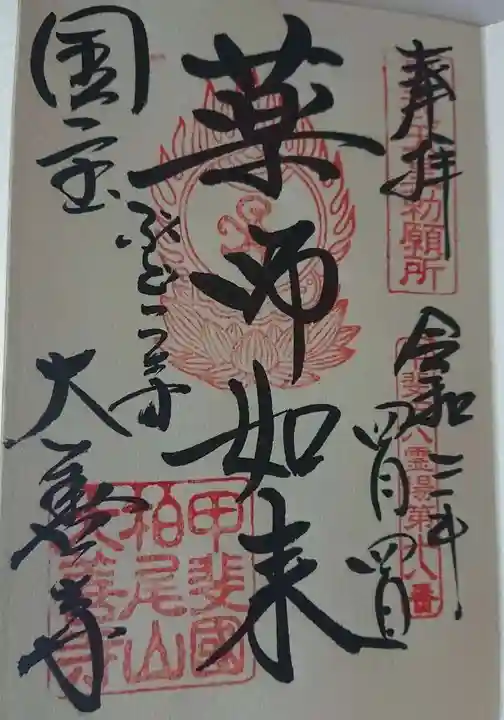 奉拝
勅願所
令和三年
四月四日
甲斐百八霊場第八番
薬師如来
国宝
ぶどう寺
大善寺
甲斐國
柏尾山
大善寺